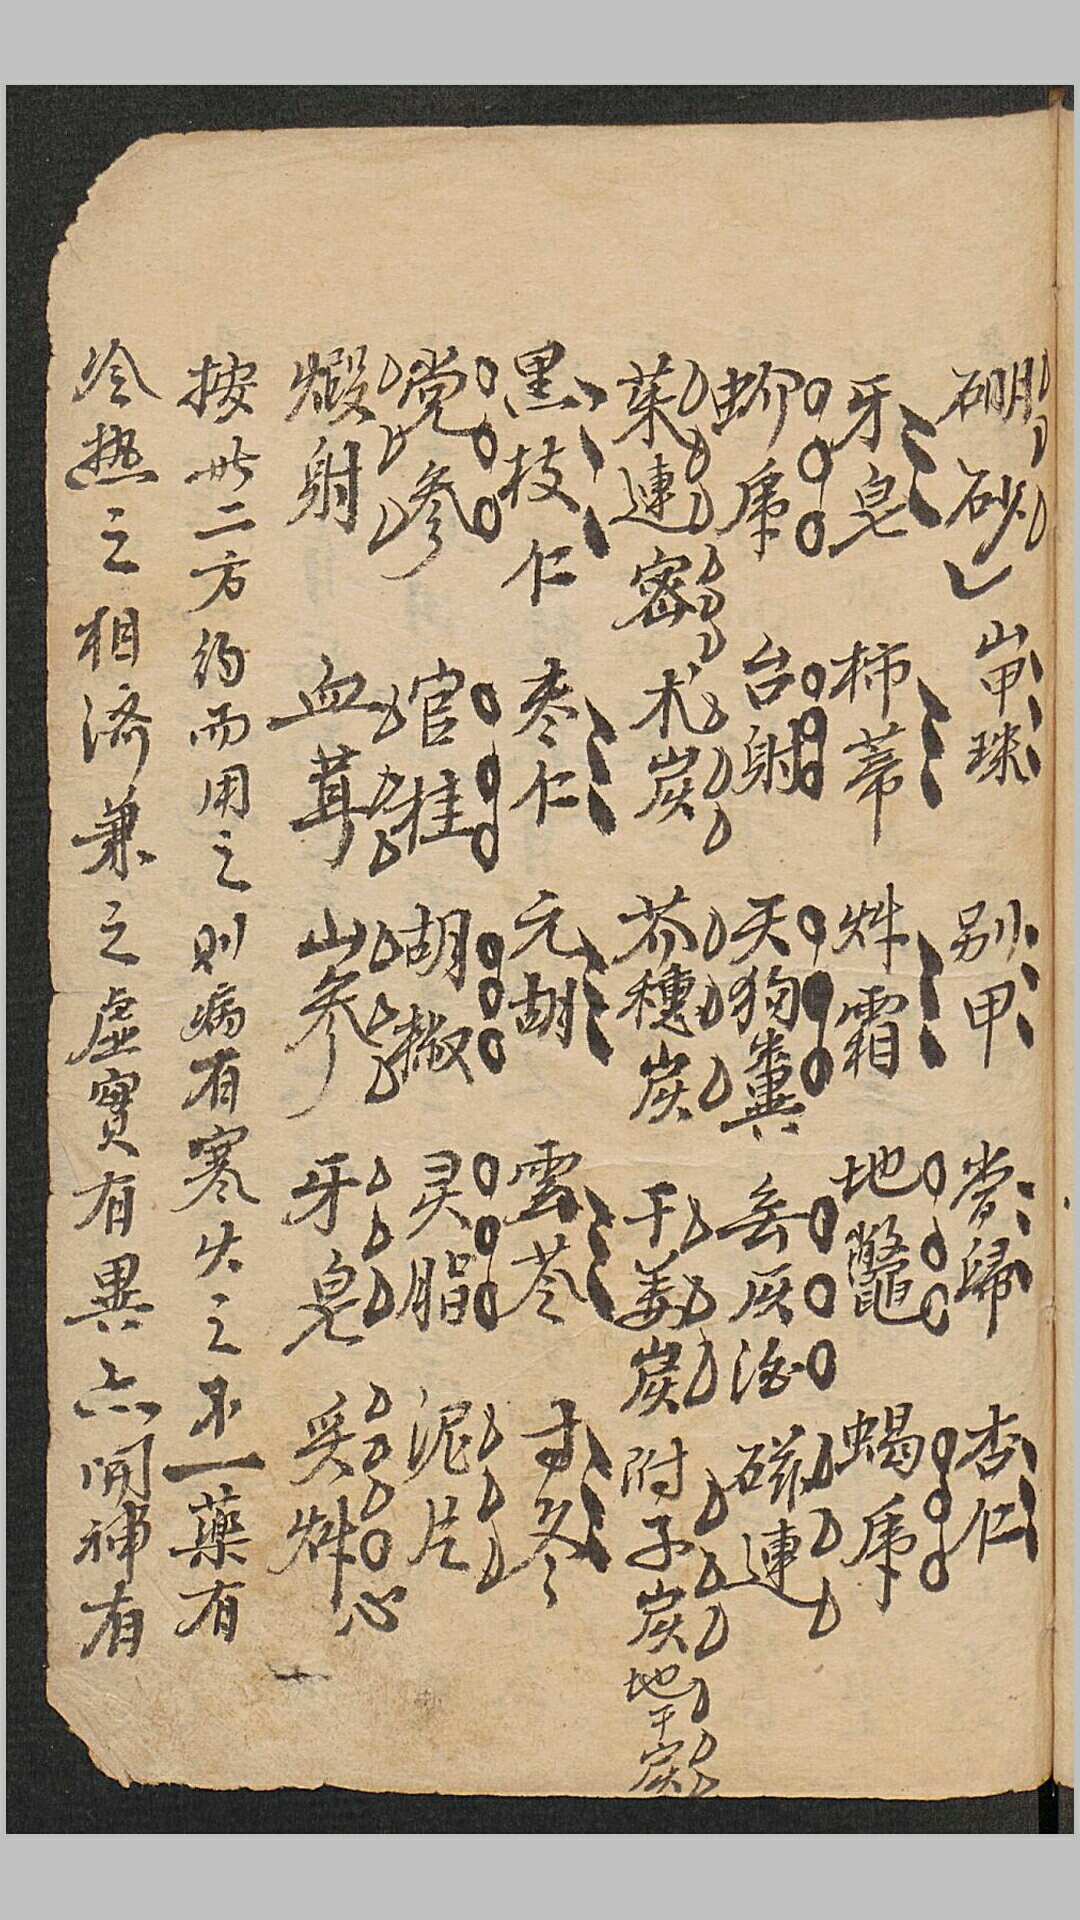 硼砂 山甲珠 别甲 當歸 杏仁
牙皂 柿蒂 霜 地鱉 蝎尾
台射 天狗糞 磁連
茱連 密 术炭 芥穗炭 干姜炭 附子炭 地干炭
黑枝仁 枣仁 元胡 雲苓 寸冬
党參 官桂 胡椒 灵脂 泥片
煅射 血茸 山參 牙皂
按此二方約而用之則病有寒火之不一藥有
冷热之相济兼之虛實有異六開神有